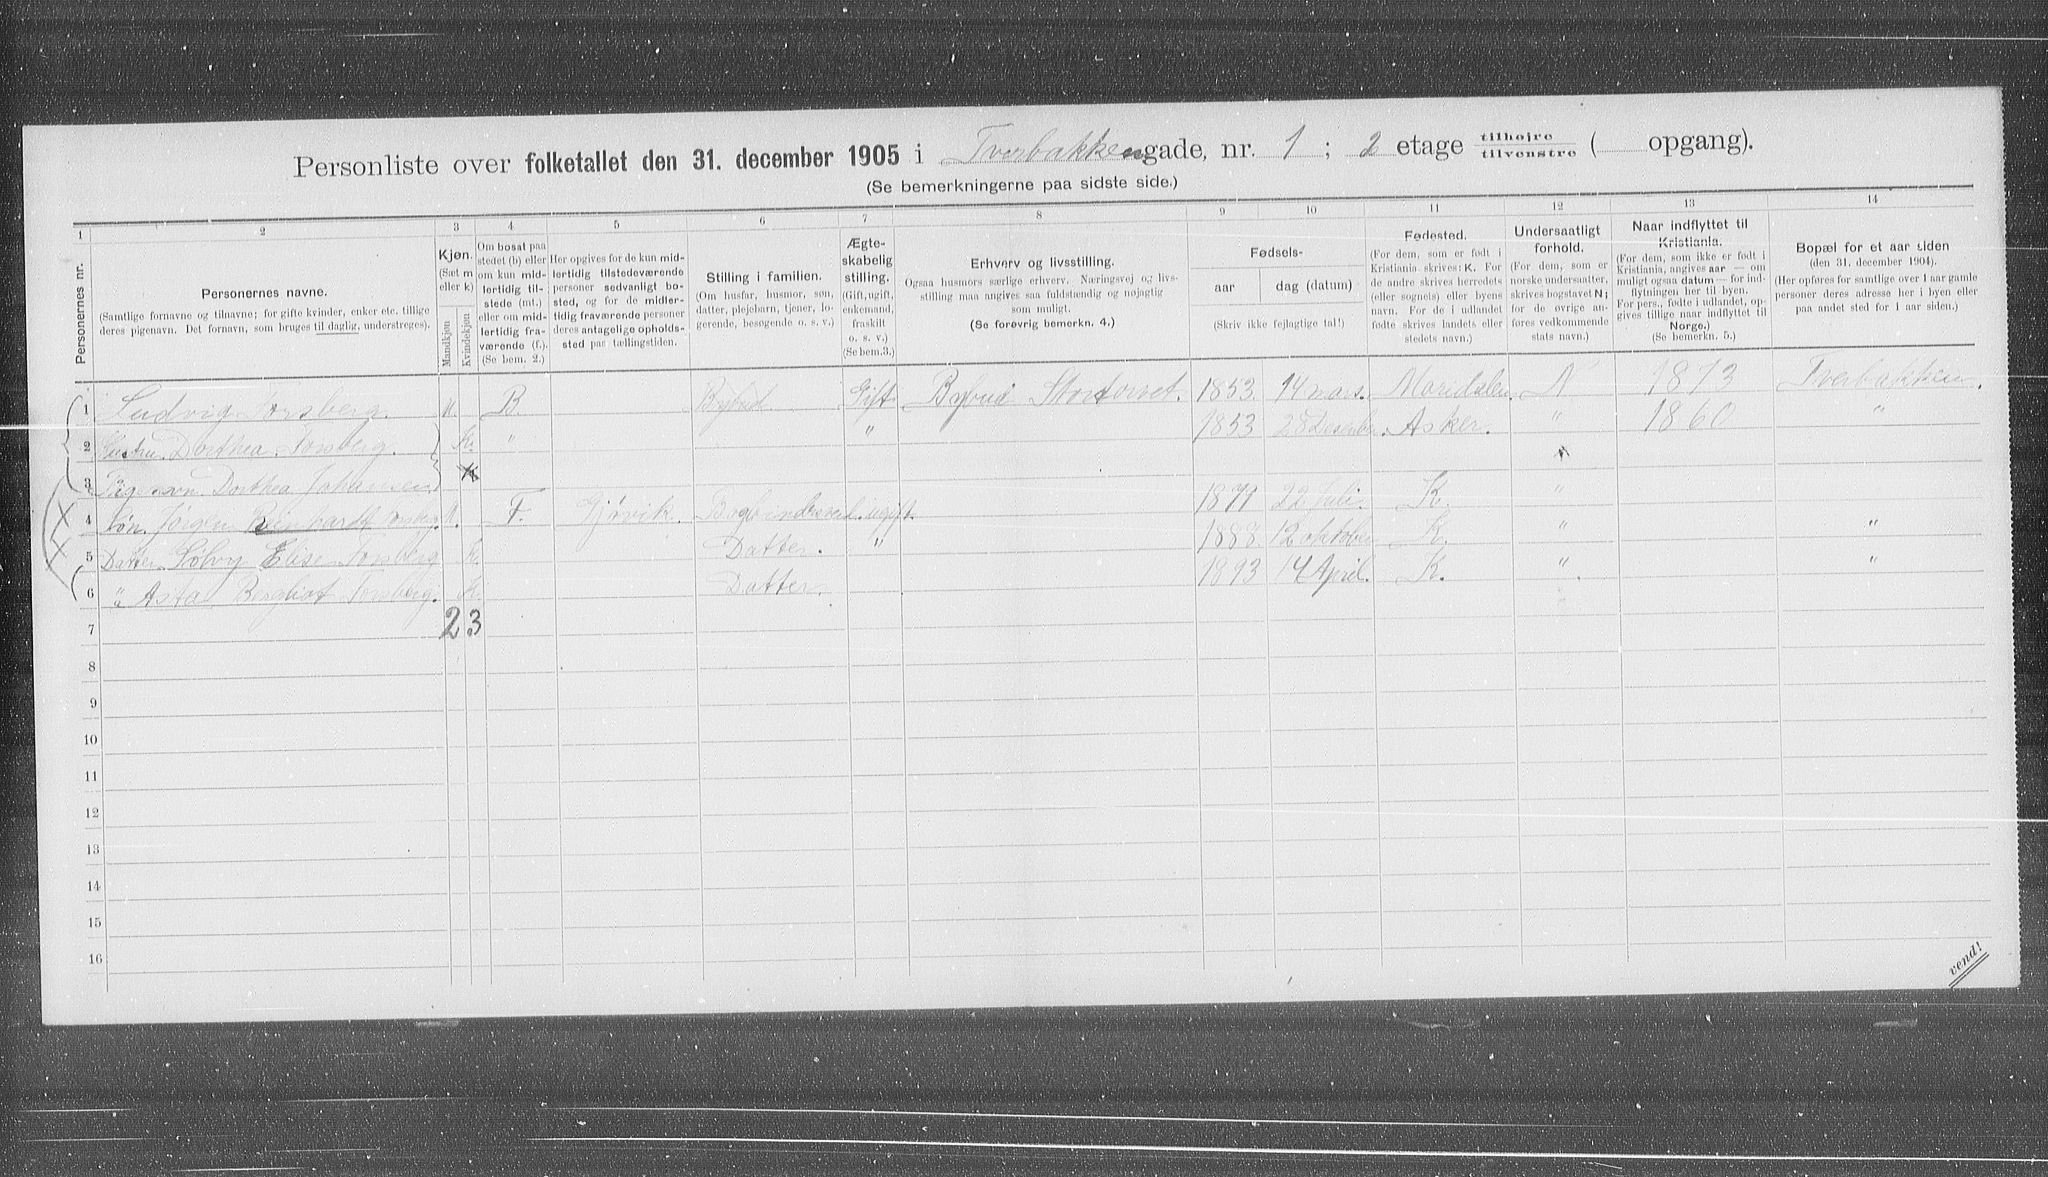 Personliste over folketallet den 31. december 1905 i Tverbakkengade, nr. 1 ; 2 etage tilhøjre / tilvenstre ( opgang).
(Se bemerkningerne paa sidste side.)
1 2 3 4 5 6 7 8 9 10 11 12 13 14
Personernes nr.
Personernes navne.
(Samtlige fornavne og tilnavne; for gifte kvinder, enker etc. tillige
deres pigenavn. Det fornavn, som bruges til daglig, understreges).
Kjøn.
(Sæt m
eller k)
Mandkjøn
Kvindekjøn
Om bosat paa
stedet (b) eller
om kun mid-
lertidig til-
stede (mt.)
eller om mid-
lertidig fra-
værende (f.).
(Se bem. 2.)
Her opgives for de kun mid-
lertidig tilstedeværende
personer sedvanligt bo-
sted, og for de midler-
tidig fraværende personer
deres antagelige opholds-
sted paa tællingstiden.
Stilling i familien.
(Om husfar, husmor, søn,
datter, plejebarn, tjener, lo-
gerende, besøgende o. s. v.)
Ægte-
skabelig
stilling.
(Gift, ugift,
enkemand,
fraskilt
o. s. v.)
(Se bem. 3.)
Erhverv og livsstilling.
Ogsaa husmors særlige erhverv. Næringsvej og livs-
stilling maa angives saa fuldstændig og nøjagtig
som muligt.
(Se forøvrig bemerkn. 4.)
Fødsels-
aar
dag (datum)
(Skriv ikke fejlagtige tal!)
Fødested.
(For dem, som er født i
Kristiania skrives: K. For
de andre skrives herredets
(eller sognets) eller byens
navn. For de i udlandet
fødte skrives landets eller
stedets navn.)
Undersaatligt
forhold.
(For dem, som er
norske undersaatter,
skrives bogstavet N;
for de øvrige an-
føres vedkommende
stats navn.)
Naar indflyttet til
Kristiania.
(For dem, som ikke er født i
Kristiania, angives aar — om
muligt ogsaa datum — for ind-
flytningen her til byen.
For pers., fødte i udlandet, op-
gives tillige naar indflyttet til
Norge.)
(Se bemerkn. 5.)
Bopæl for et aar siden
(den 31. december 1904).
(Her opføres for samtlige over 1 aar gamle
personer deres adresse her i byen eller
paa andet sted for 1 aar siden.)
1 Ludvig Forsberg. M. B. Bybud Gift Bybud Stortorvet. 1853. 14 mars. Maridalen N 1873 Tverbakken.
2 Hustru Dorthea Forsberg. Kv. " " 1853 28 Desember. Asker. " 1860 "
3 Pigenavn Dorthea Johansen
4 Søn. Jørgen Forsberg M. F. Gjøvik. ugift. 1871 22 Juli. K. "
5 Datter Solvy Elise Forsberg Kv. Datter. " 1888 12 oktober K. " "
6 " Asta Bergliot Forsberg. Kv. Datter. 1893 14 April. K. " "
7 2 3
8
9
10
11
12
13
14
15
16
vend!